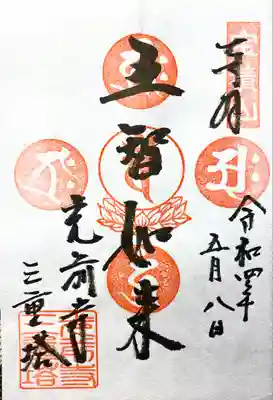 奉拝
令和四年
五月八日
五智如来
光前寺
三重塔